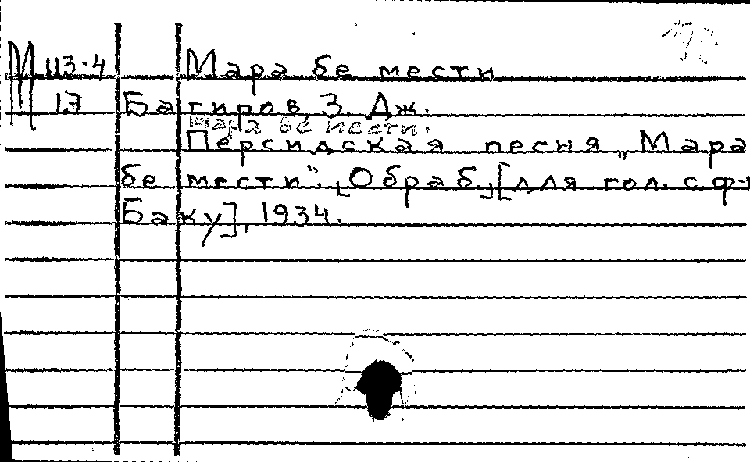 М из-4 Мара бе мести
17 Багиров, З. Дж.
Мара бе мести.
Персидская песня „Мара
бе мести". [Обраб.] [для гол. с ф-
Баку], 1934.